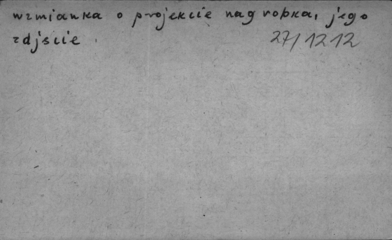 wzmianka o projekcie nagrobka, jego
zdjęcie 27/1212